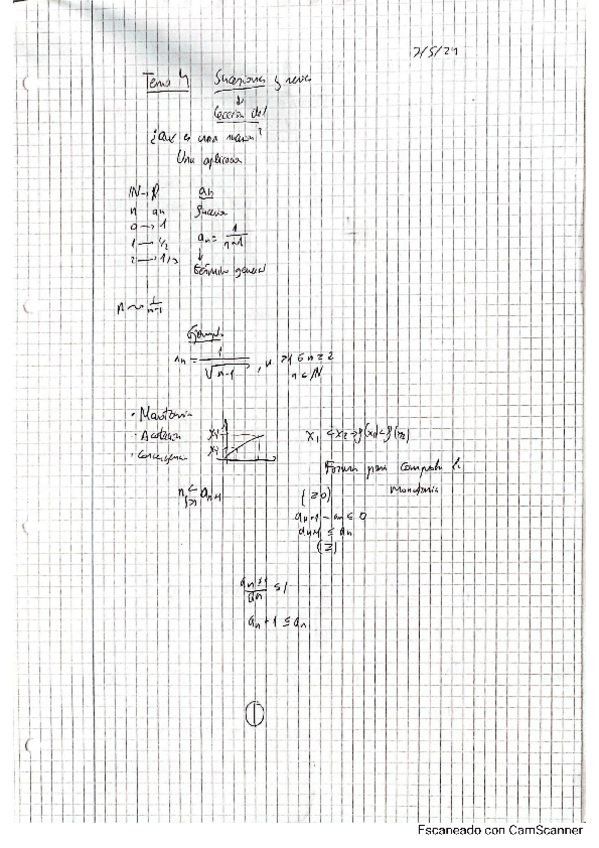 7/5/21
Tema 4 Sucesiones y series
¿Qué es una sucesión?
Una aplicación
IN → R an
n an Sucesión
0 → 1 an = 1/(n+1)
1 → 1/2
2 → 1/3 término general
n ~ 1/(n+1)
Ejemplo
an = 1/√(n-1), n >1 ó n ≥ 2
n ∈ IN
· Monotonía
· Acotación x1 < x2 → f(x1) < f(x2)
· Convergencia
Forma para comprobar la
monotonía
(≥0)
an+1 - an ≤ 0
an+1 ≤ an
(≥)
an+1/an ≤ 1
an+1 ≤ an
1
Escaneado con CamScanner